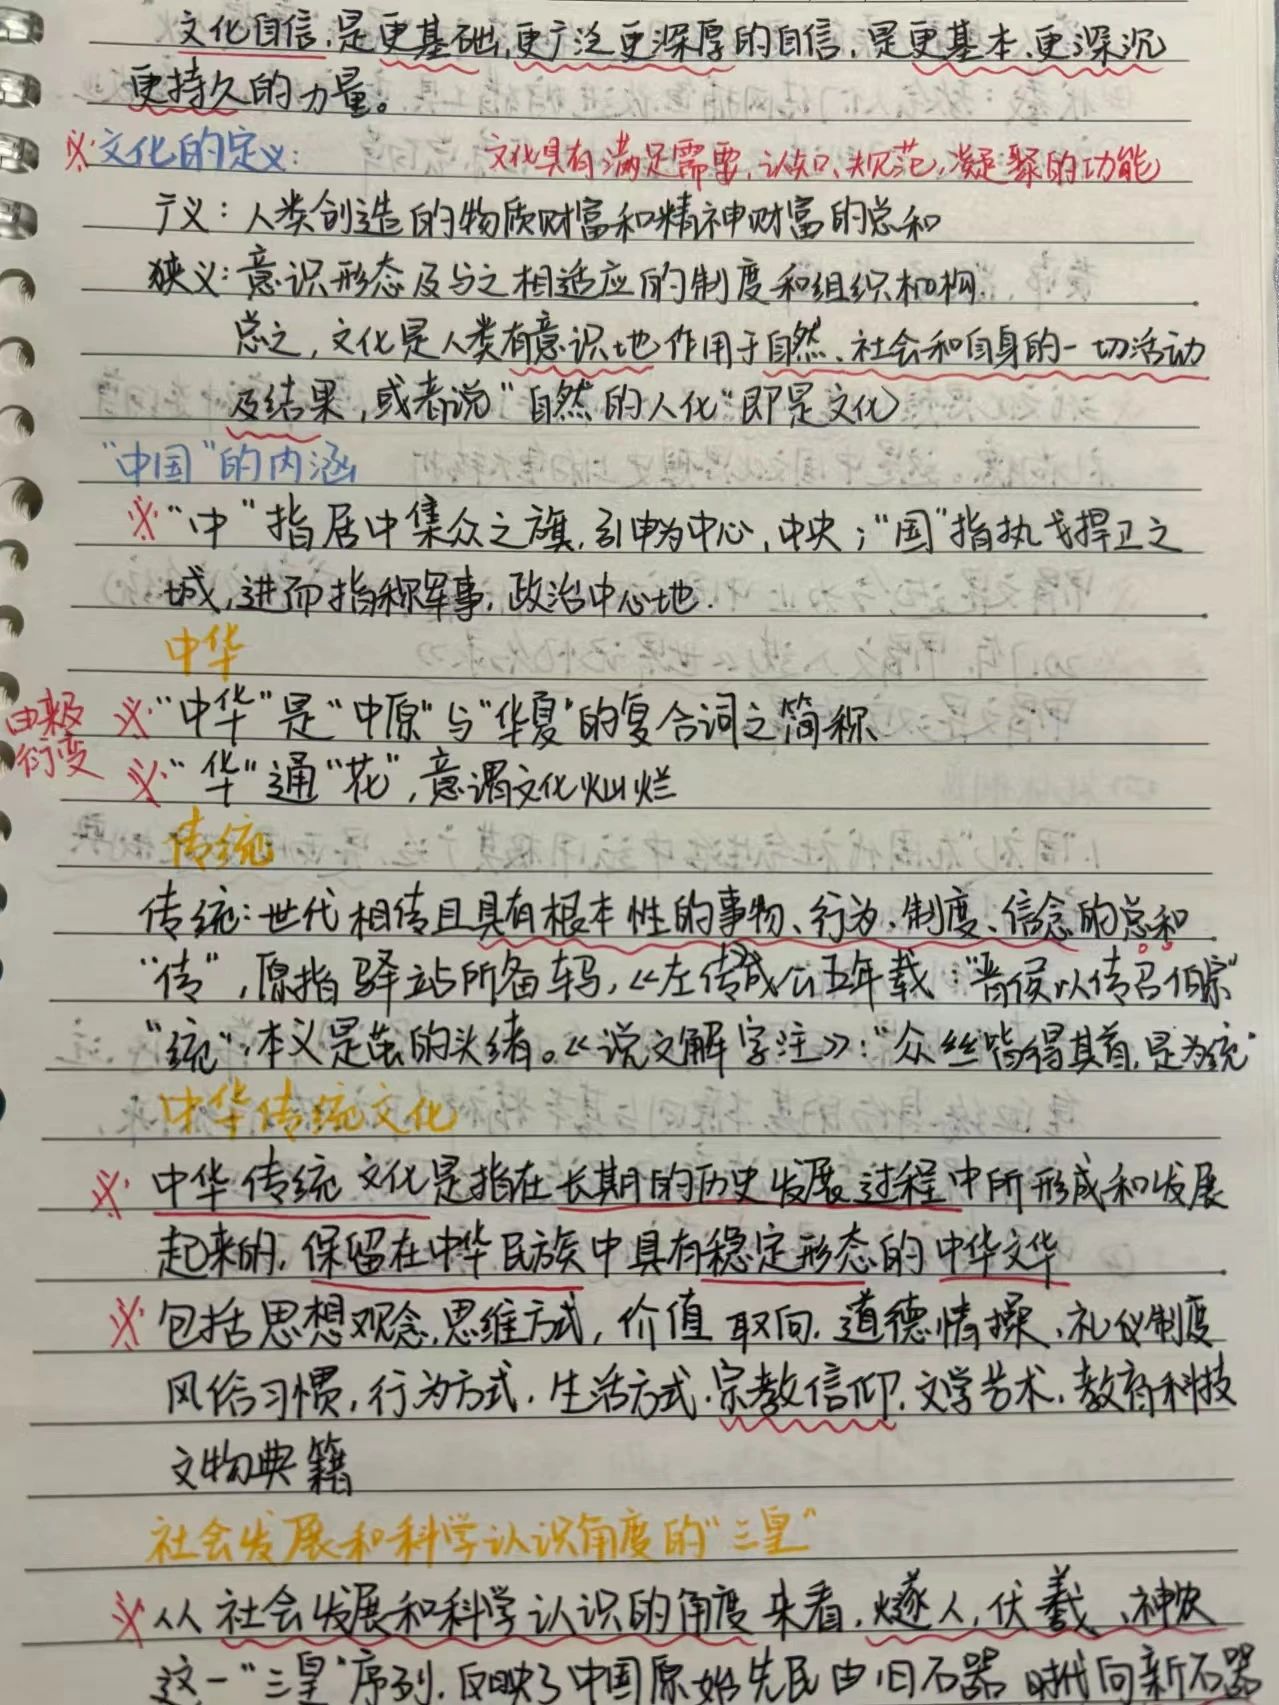 文化自信,是更基础,更广泛更深厚的自信,是更基本、更深沉
更持久的力量。
※文化的定义: 文化具有满足需要、认知、规范,凝聚的功能
广义:人类创造的物质财富和精神财富的总和
狭义:意识形态及与之相适应的制度和组织机构
总之,文化是人类有意识地作用于自然、社会和自身的一切活动
及结果,或者说"自然的人化"即是文化
"中国"的内涵
※"中"指居中集众之旗,引申为中心,中央;"国"指执戈捍卫之
城,进而指称军事,政治中心地.
中华
由来及衍变
※"中华"是"中原"与"华夏"的复合词之简称
※"华"通"花",意谓文化灿烂
传统
传统:世代相传且具有根本性的事物、行为、制度、信念的总和
"传",原指驿站所备车马,《左传成公五年载:"晋侯以传召伯宗"
"统",本义是茧的头绪。《说文解字注》:"众丝皆得其首,是为统"
中华传统文化
※中华传统文化是指在长期的历史发展过程中所形成和发展
起来的,保留在中华民族中具有稳定形态的中华文华
※包括思想观念,思维方式,价值取向,道德情操、礼仪制度
风俗习惯,行为方式,生活方式,宗教信仰,文学艺术,教育科技
文物典籍
社会发展和科学认识角度的"三皇"
※从社会发展和科学认识的角度来看,燧人,伏羲、神农
这一"三皇"序列,反映了中国原始先民由旧石器时代向新石器